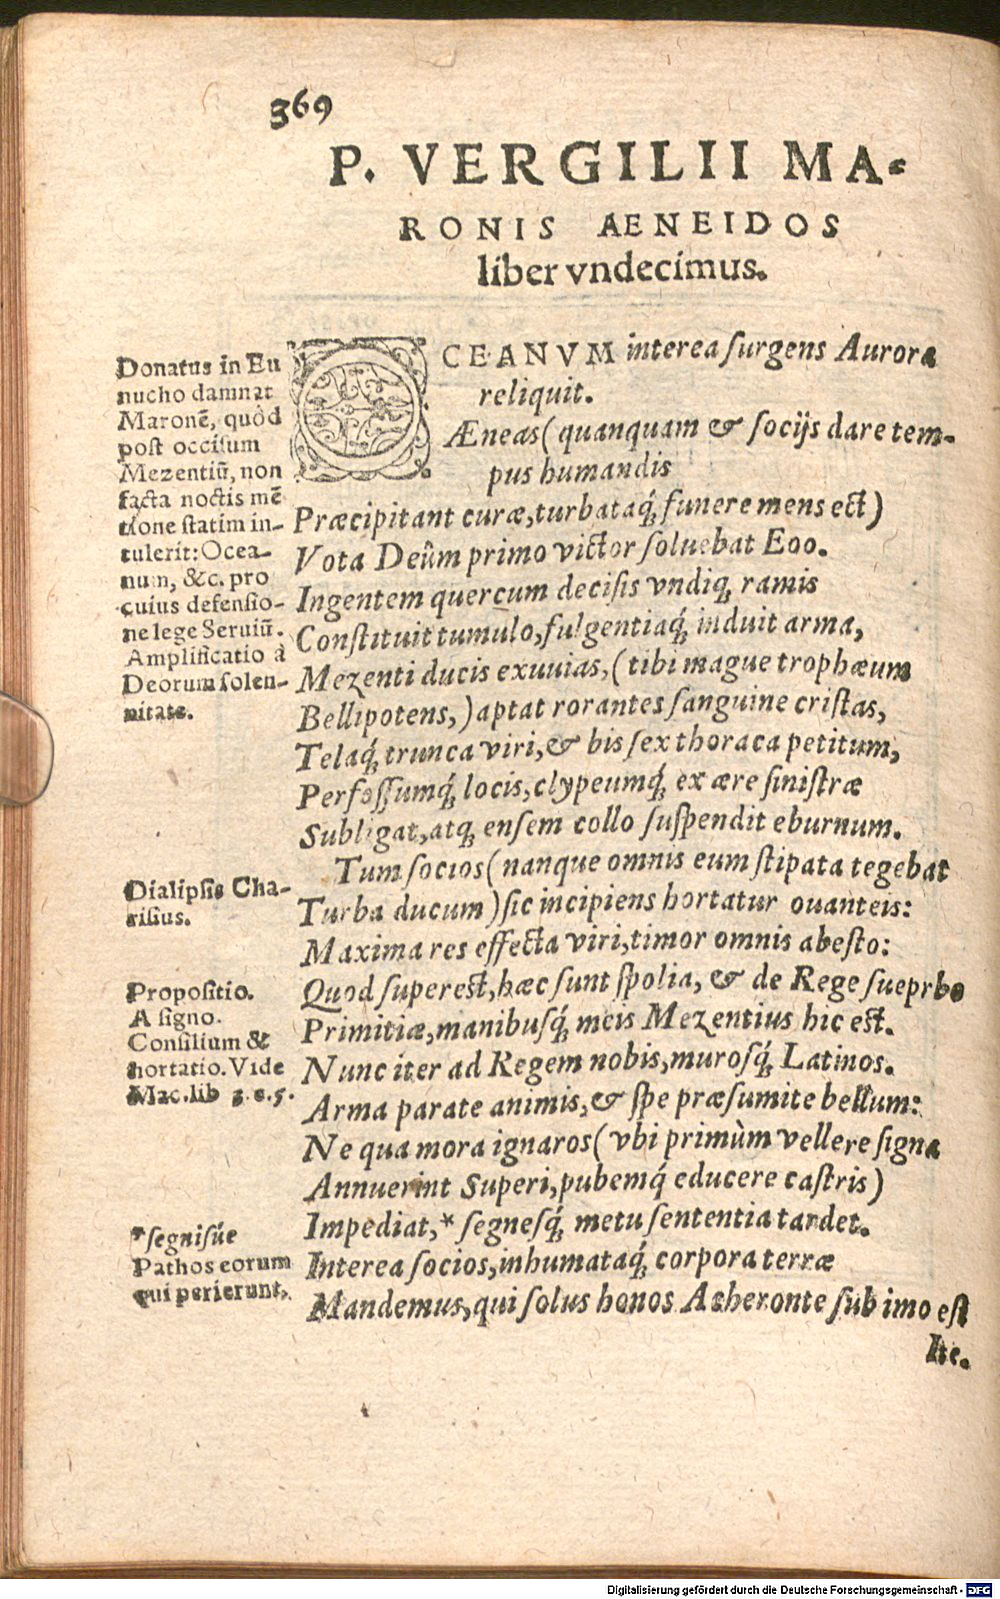 369
P. VERGILII MA-
RONIS AENEIDOS
liber vndecimus.
Donatus in Eu
nucho damnat
Maronẽ, quòd
post occisum
Mezentiũ, non
facta noctis mẽ
tione statim in-
tulerit: Ocea-
num, &c. pro
cuius defensio-
ne lege Seruiũ.
Amplificatio à
Deorum solen-
nitate.
OCEANVM interea surgens Aurora
reliquit.
Æneas (quanquam & socijs dare tem-
pus humandis
Præcipitant curæ, turbataq́; funere mens est)
Vota Deûm primo victor soluebat Eoo.
Ingentem quercum decisis vndiq; ramis
Constituit tumulo, fulgentiaq́; induit arma,
Mezenti ducis exuuias, (tibi mague trophæum
Bellipotens,) aptat rorantes sanguine cristas,
Telaq́; trunca viri, & bis sex thoraca petitum,
Perfossumq́; locis, clypeumq́; ex ære sinistræ
Subligat, atq; ensem collo suspendit eburnum.
Tum socios (nanque omnis eum stipata tegebat
Dialipsis Cha-
risius.
Turba ducum) sic incipiens hortatur ouanteis:
Maxima res effecta viri, timor omnis abesto:
Propositio.
A signo.
Consilium &
hortatio. Vide
Mac. lib 3. c. 5.
Quod superest, hæc sunt spolia, & de Rege sueprbo
Primitiæ, manibusq́; meis Mezentius hic est.
Nunc iter ad Regem nobis, murosq́; Latinos.
Arma parate animis, & spe præsumite bellum:
Ne qua mora ignaros (vbi primùm vellere signa
Annuerint Superi, pubemq́; educere castris)
Impediat,* segnesq́; metu sententia tardet.
*segnisúe
Pathos eorum
qui perierunt.
Interea socios, inhumataq́; corpora terræ
Mandemus, qui solus honos Acheronte sub imo est
Ite.
Digitalisierung gefördert durch die Deutsche Forschungsgemeinschaft - DFG